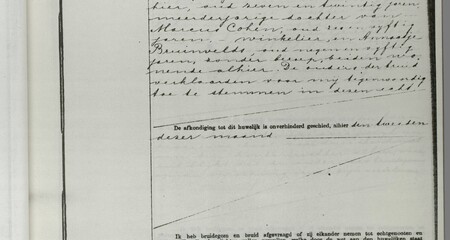 hier, oud zeven en twintig jaren,
meerderjarige dochter van
Marcus Cohen, oud zeven vijftig
jaren, winkelier, en Naatje
oud negen en vijftig
jaren, zonder beroep, beiden wo-
nende alhier. De ouders der bruid
verklaarden voor mij tegenwoordig
toe te stemmen in dezen echt.
De afkondiging tot dit huwelijk is onverhinderd geschied, alhier den tweeden
dezer maand
Ik heb bruidegom en bruid afgevraagd of zij elkander nemen tot echtgenooten en
welke door de wet aan den huwelijken staat